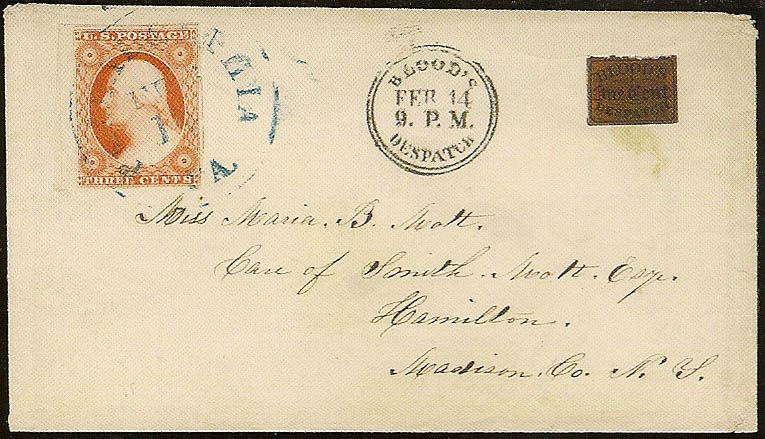 U.S. POSTAGE
THREE CENTS
BLOOD'S
FEB 14
9. P. M.
DESPATCH
BLOOD'S
One Cent
DESPATCH
Miss Maria. B. Mott.
Care of Smith. Mott. Esq.
Hamilton.
Madison. Co. N. Y.